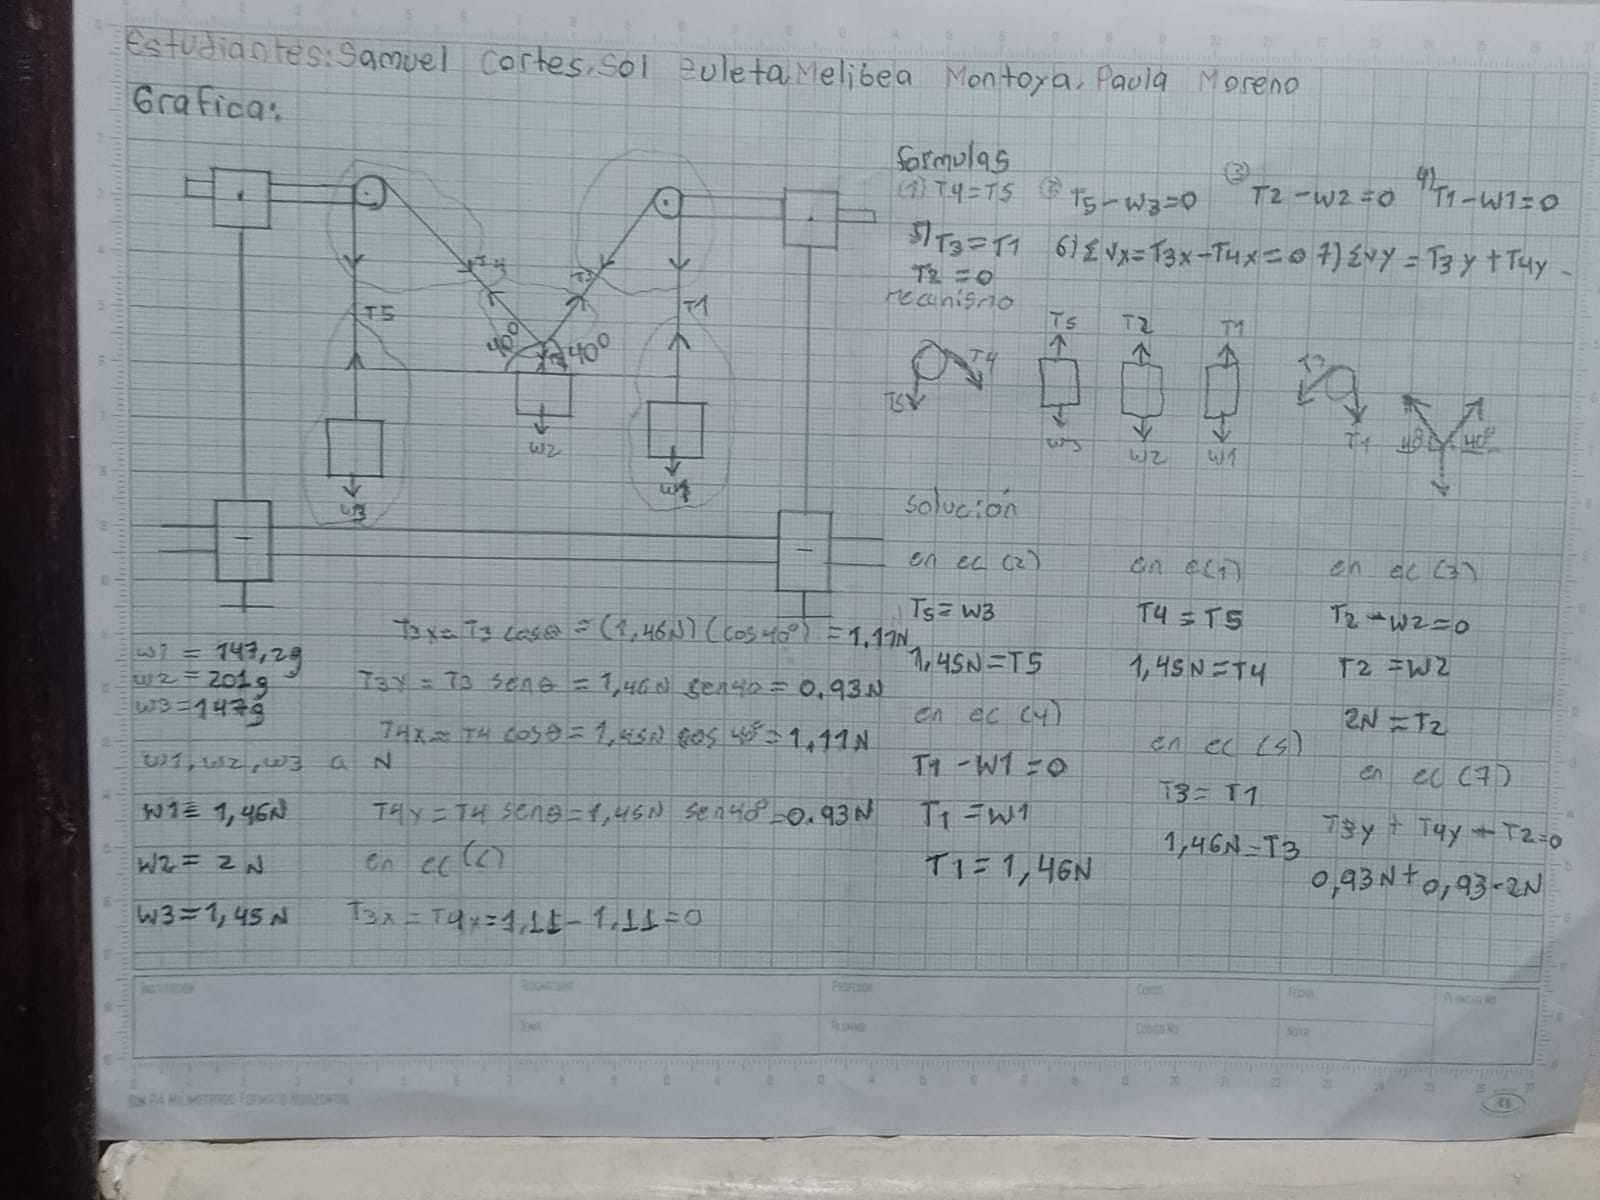 Estudiantes: Samuel Cortes, Sol Zuleta, Melibea Montoya, Paula Moreno
Grafica:
T4
T3
T5
T1
40°
40°
T2
W2
W3
W1
formulas
(1) T4=T5 (2) T5-W3=0 (3) T2-W2=0 4) T1-W1=0
5) T3=T1 6) ΣVx=T3x-T4x=0 7) ΣVY=T3y+T4y-
T2=0
mecanismo
T5 T4
T5 W3
T2 W2
T1 W1
T3 T1
40° 40°
solución
en ec (2)
T5=W3
1,45N=T5
en ec (4)
T1-W1=0
T1=W1
T1=1,46N
en ec(1)
T4=T5
1,45N=T4
en ec (5)
T3=T1
1,46N=T3
en ec (3)
T2-W2=0
T2=W2
2N=T2
en ec (7)
T3y+T4y+T2=0
0,93N+0,93-2N
W1=147,2g
W2=201g
W3=147g
W1,W2,W3 a N
W1=1,46N
W2=2N
W3=1,45N
T3x=T3 cosθ=(1,46N)(cos40°)=1.11N
T3Y=T3 senθ=1,46N sen40=0.93N
T4x=T4 cosθ=1,45N cos 40°=1.11N
T4y=T4 senθ=1,45N sen40=0.93N
en ec (6)
T3x=T4x=1,11-1,11=0
INSTITUCIÓN
ASIGNATURA
PROFESOR
CURSO
FECHA
PLANCHA No
TEMA
ALUMNO
CÓDIGO No
NOTA
DIN A4 MILIMETRADO FORMATO HORIZONTAL